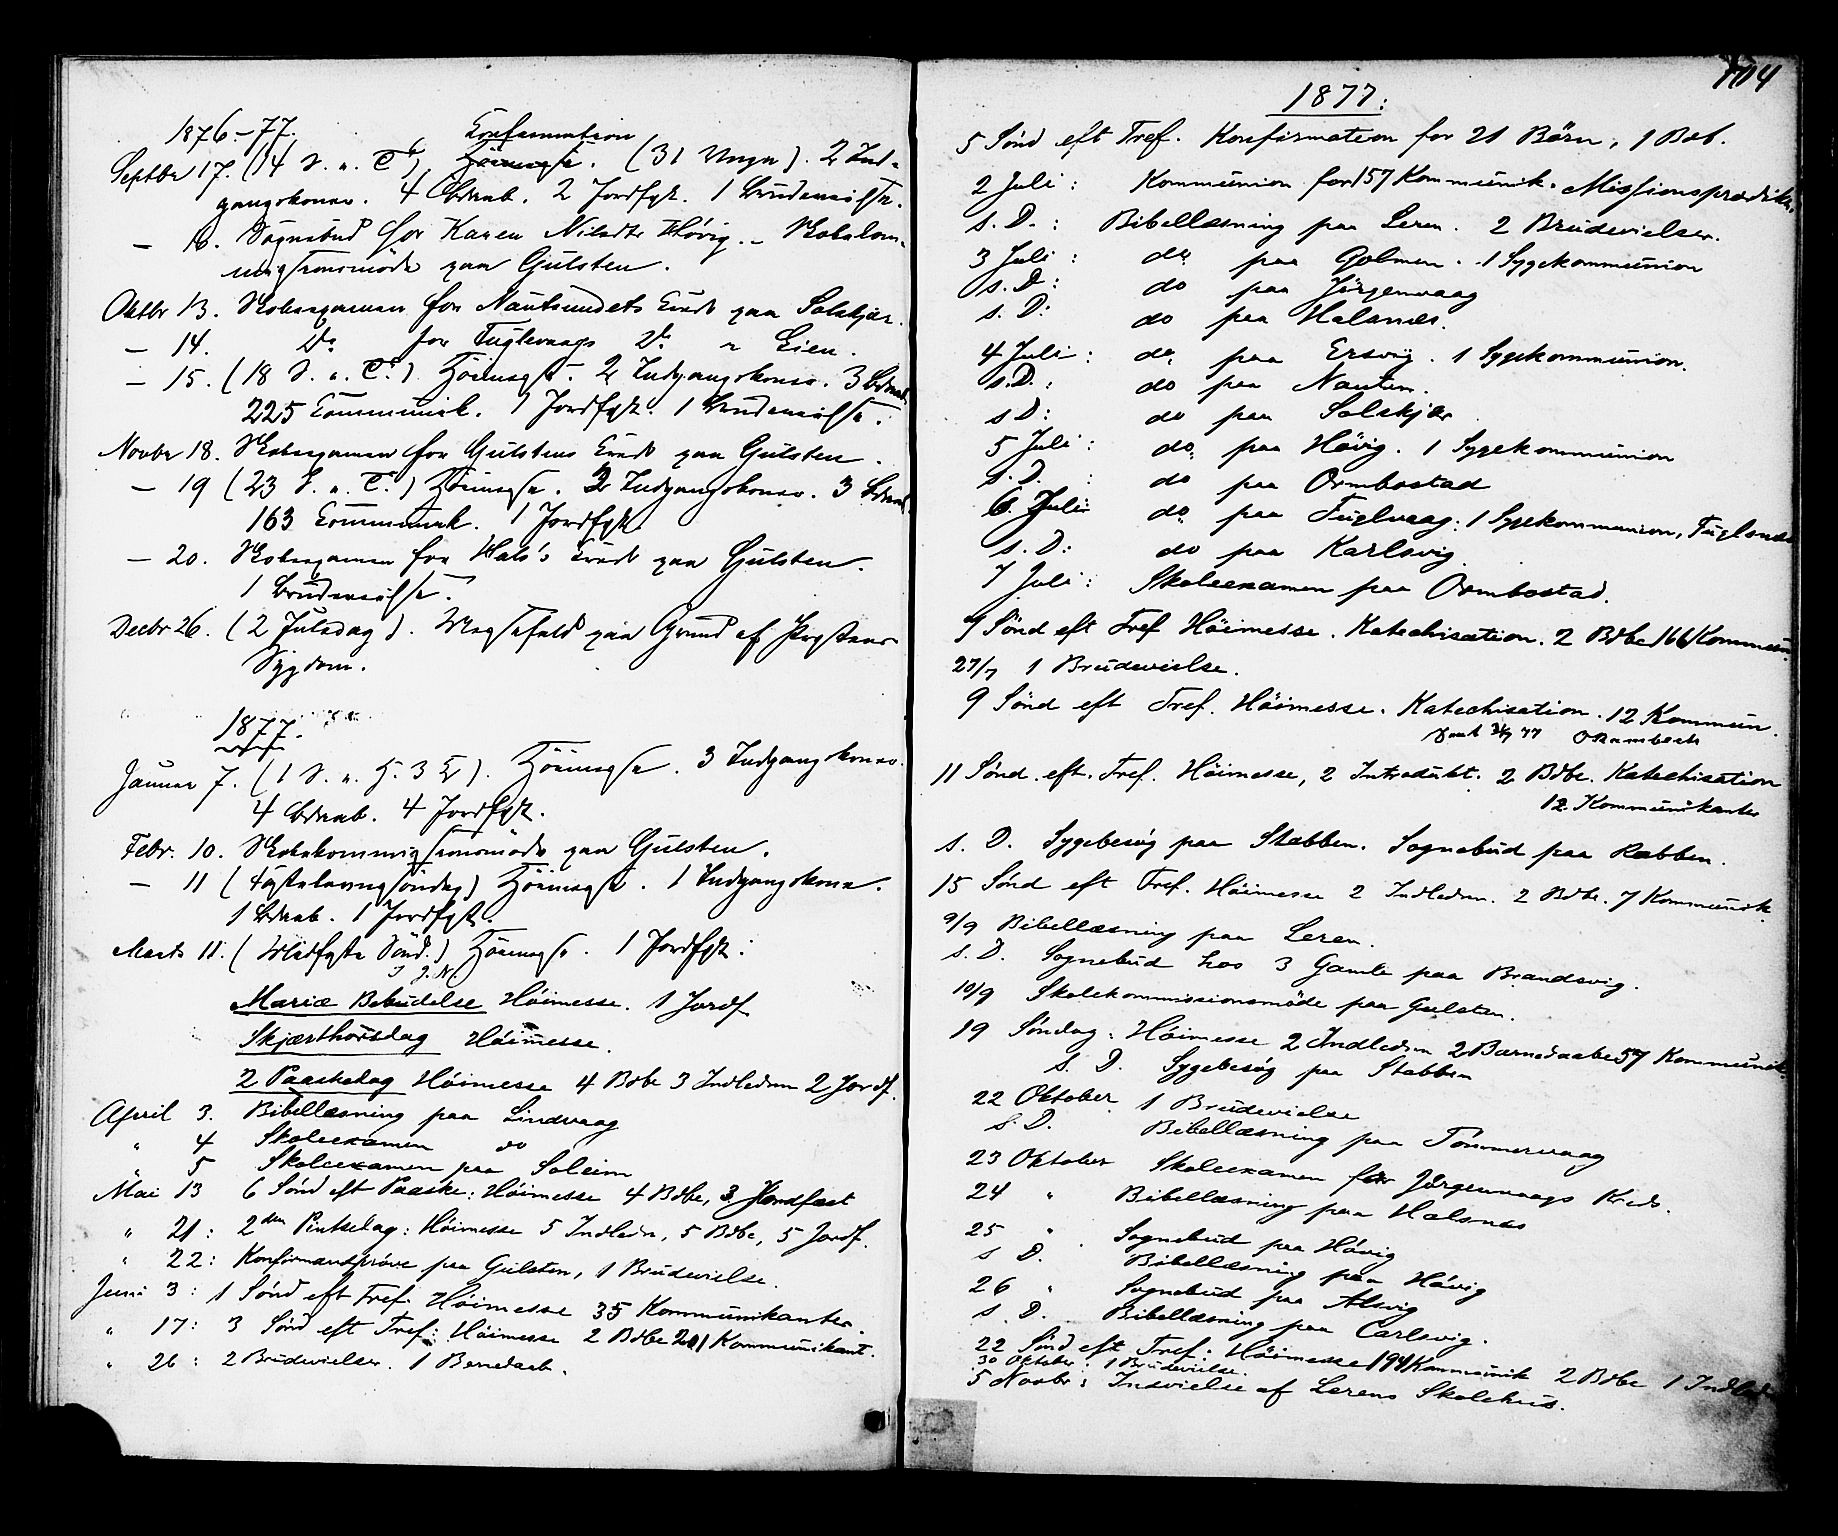 1876-77.
Confirmation
Septbr 17. (14 S. e. T.) Höimesse. (31 Unge). 2 Ind-
gangskoner. 4 Bdaab. 2 Jordfgt. 1 Brudevielse.
— 18. Sognebud for Karen Nilsdtr Hövig. - Skolekom-
missionsmöde paa Gulsten.
Oktbr 13. Skoleexamen for Nautsundets Kreds paa Solskjær.
— 14. Do for Fuglevaags Do " Lien.
— 15. (18 S. e. T.) Höimesse. 2 Indgangskoner. 3 Bdaab.
225 Communik. 1 Jordfgt. 1 Brudevielse.
Novbr 18. Skoleexamen for Gulstens Kreds paa Gulsten.
— 19 (23 S. e. T.) Höimesse. 2 Indgangskoner. 3 Bdaab.
163 Communik. 1 Jordfgt.
— 20. Skoleexamen for Hals's Kreds paa Gulsten.
1 Brudevielse.
Decbr 26. (2 Juledag). Messefald paa Grund af Præstens
Sygdom.
1877.
Januar 7. (1 S. e. H. 3 K.). Höimesse. 3 Indgangskoner.
4 Bdaab. 4 Jordfgt.
Febr. 10. Skolekommissionsmöde paa Gulsten.
— 11 (Fastelavnssöndag) Höimesse. 1 Indgangskone.
1 Bdaab. 1 Jordfgt.
Marts 11. (Midfaste Sönd.) Höimesse. 1 Jordfgt.
Mariæ Bebudelse Höimesse. 1 Jordf
Skjærthorsdag Höimesse.
2 Paaskedag Höimesse 4 Bdbe 3 Indledn 2 Jordf.
April 3. Bibellæsning paa Lindvaag
" 4 Skoleexamen do
5 Skoleexamen paa Soleim
Mai 13 6 Sönd eft Paaske: Höimesse 4 Bdbe, 3 Jordfæst
" 21: 2den Pintsedag: Höimesse 5 Indledn, 5 Bdbe, 5 Jordf.
" 22: Konfirmandpröve paa Gulsten, 1 Brudevielse.
Juni 3: 1 Sönd eft Tref. Höimesse 35 Kommunikanter.
" 17: 3 Sönd eft Tref: Höimesse 2 Bdbe 201 Kommunikant.
" 26: 2 Brudevielser. 1 Bernedaab.
104
1877:
5 Sönd eft Tref. Konfirmation for 21 Börn, 1 Bdb.
2 Juli: Kommunion for 157 Kommunik. Missionsprædik.
s. D.: Bibellæsning paa Leren. 2 Brudevielser.
3 Juli: do paa Golmen. 1 Sygekommunion
s. D: do paa Jörgenvaag
s. D: do paa Halsnæs.
4 Juli: do paa Ersvig. 1 Sygekommunion.
s. D.: do paa Nauten.
s D: do paa Solskjær
5 Juli: do paa Hövig. 1 Sygekommunion
s. D.: do paa Ormbostad
6. Juli do paa Fuglvaag: 1 Sygekommunion, Fuglsnes
s. D: do paa Karlsvig
7 Juli: Skoleexamen paa Ormbostad.
9 Sönd eft Tref Höimesse. Katechisation. 2 Bdbe 166 Kommun.
27/7 1 Brudevielse.
9 Sönd eft Tref. Höimesse. Katechisation. 12 Kommun.
11 Sönd. eft. Tref. Höimesse, 2 Introdukt. 2 Bdbe. Katechisation
12 Kommunikanter
s. D. Sygebesög paa Stabben. Sognebud paa Rabben.
15 Sönd eft Tref. Höimesse 2 Indledn. 2 Bdbe. 7 Kommunik.
9/9 Bibellæsning paa Leren.
s. D. Sognebud hos 3 Gamle paa Brandsvig.
10/9 Skolekommissionsmöde paa Gulsten.
19 Söndag. Höimesse 2 Indledn 2 Barnedaabe 57 Kommunik.
s. D. Sygebesög paa Stabben
22 Oktober 1 Brudevielse
s. D. Bibellæsning paa Tömmervaag
23 Oktober Skoleexamen for Jörgenvaags Kreds.
24 " Bibellæsning paa Halsnæs
25 " Sognebud paa Hövig
s D. Bibellæsning paa Hövig
26 " Sognebud paa Alsvig
s. D. Bibellæsning paa Carlsvig.
22 Sönd eft Tref: Höimesse 194 Kommunik 2 Bdbe 1 Indledn
30 Oktober: 1 Brudevielse.
5 Novbr: Indvielse af Lerens Skolehus.